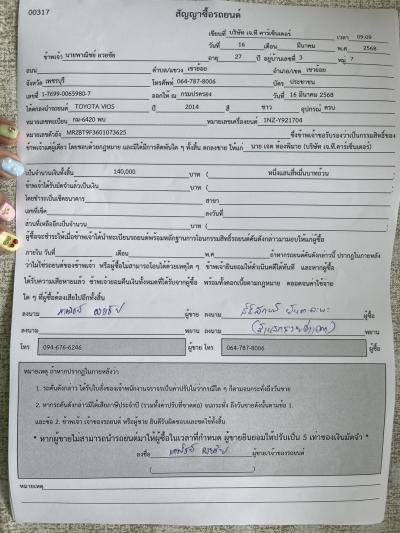 00317
สัญญาซื้อรถยนต์
เขียนที่ บริษัท เจ.ที คาร์เซ็นเตอร์ เวลา 09.09
วันที่ 16 เดือน มีนาคม พ.ศ. 2568
ข้าพเจ้า นายพาณิชย์ อวยชัย อายุ 27 ปี อยู่บ้านเลขที่ 3 หมู่ 7
ถนน ตำบล/แขวง เขาย้อย อำเภอ/เขต เขาย้อย
จังหวัด เพชรบุรี โทรศัพท์ 064-787-8006 บัตร ประชาชน
เลขที่ 1-7699-0065980-7 ออกให้ ณ กรมปกครอง วันที่ 16 มีนาคม 2568
ได้ตกลงขายรถยนต์ TOYOTA VIOS ปี 2014 สี ขาว อุปกรณ์ ครบ
หมายเลขทะเบียน กม-6420 พบ หมายเลขเครื่องยนต์ 1NZ-Y921704
หมายเลขตัวถัง MR2BT9F3601073625 ซึ่งข้าพเจ้าขอรับรองว่าเป็นกรรมสิทธิ์ของ
ข้าพเจ้าแต่ผู้เดียว โดยชอบด้วยกฎหมาย และมิได้มีการติดพันใด ๆ ทั้งสิ้น ตกลงขาย ให้แก่ นาย เจต ท้องพิมาย (บริษัท เจ.ที.คาร์เซ็นเตอร์)
เป็นจำนวนเงินทั้งสิ้น 140,000 บาท ( หนึ่งแสนสี่หมื่นบาทถ้วน
ข้าพเจ้าได้รับมัดจำแล้วเป็นเงิน บาท (
โดยชำระเป็นเช็คธนาคาร สาขา
เลขที่เช็ค ลงวันที่
ส่วนที่เหลืออีกเป็นจำนวน บาท (
ผู้ซื้อจะชำระให้เมื่อข้าพเจ้าได้นำทะเบียนรถยนต์พร้อมหลักฐานการโอนกรรมสิทธิ์รถยนต์คันดังกล่าวมามอบให้แก่ผู้ซื้อ
ภายใน วันที่ เดือน พ.ศ. ถ้าหากรถยนต์คันดังกล่าวนี้ ปรากฏในภายหลัง
ว่าไม่ใช่รถยนต์ของข้าพเจ้า หรือผู้ซื้อไม่สามารถโอนได้ด้วยเหตุใด ๆ ข้าพเจ้ายินยอมให้ดำเนินคดีได้ทันที และหากผู้ซื้อ
ได้รับความเสียหายแล้ว ข้าพเจ้ายอมคืนเงินทั้งหมดที่ได้รับจากผู้ซื้อ พร้อมทั้งดอกเบี้ยตามกฎหมาย ตลอดจนค่าใช้จ่าย
ใด ๆ ที่ผู้ซื้อต้องเสียไปอีกทั้งสิ้น
ลงนาม ผู้ขาย ลงนาม ผู้ซื้อ
ลงนาม พยาน ลงนาม พยาน
โทร 094-676-6246 ผู้ขาย โทร 064-787-8006 ผู้ซื้อ
หมายเหตุ ถ้าหากปรากฏในภายหลังว่า
1. รถคันดังกล่าว ได้รับใบสั่งของเจ้าพนักงานจราจรเป็นค่าปรับไม่ว่ากรณีใด ๆ ก็ตามจนกระทั่งถึงวันขาย
2. หากรถคันดังกล่าวมิได้เสียภาษีประจำปี (รวมทั้งค่าปรับที่ขาดต่อ) จนกระทั่ง ถึงวันขายดังนั้นตามข้อ 1.
และข้อ 2. ข้าพเจ้า เจ้าของรถยนต์ หรือผู้ขาย ยินดีรับผิดชอบและชดใช้ทั้งสิ้น
* หากผู้ขายไม่สามารถนำรถยนต์มาให้ผู้ซื้อในเวลาที่กำหนด ผู้ขายยินยอมให้ปรับเป็น 5 เท่าของเงินมัดจำ *
ลงชื่อ ผู้ขาย/เจ้าของรถยนต์
( )
หมายเหตุ